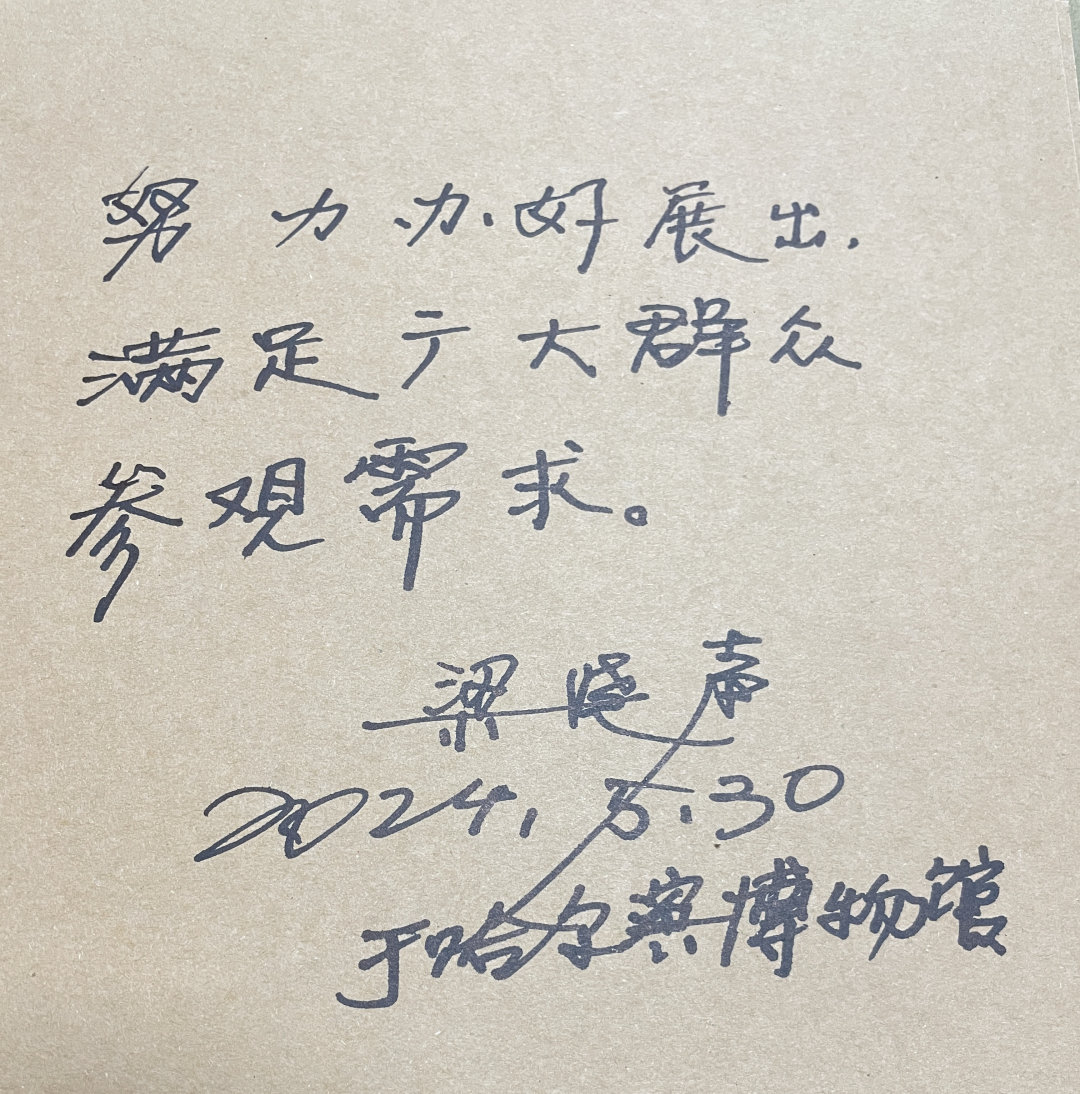 努力办好展出.
满足广大群众
参观需求。
梁晓声
2024.5.30
于哈尔滨博物馆